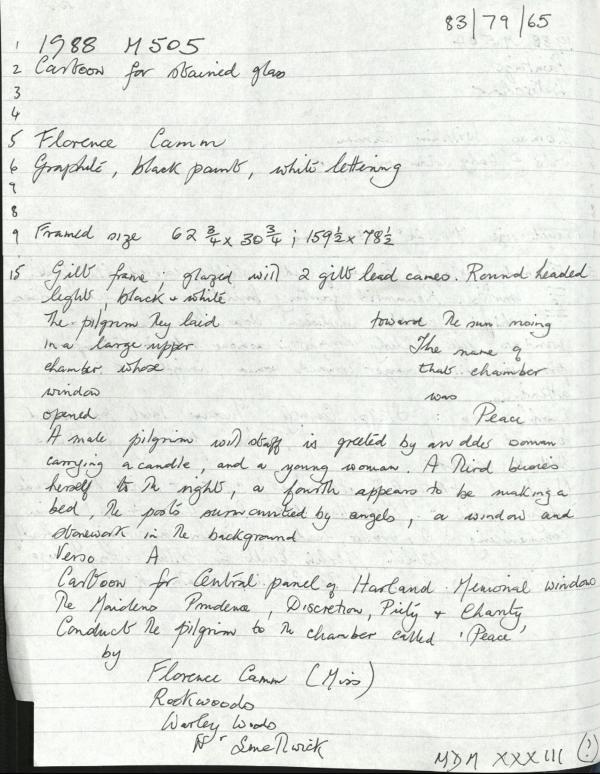 83/79/65
1 1988 M505
2 Cartoon for stained glass
3
4
5 Florence Camm
6 Graphite, black paint, white lettering
9
8
9 Framed size 62 3/4 x 30 3/4 ; 159 1/2 x 78 1/2
15 Gilt frame ; glazed with 2 gilt lead cames. Round headed
light, black + white
The pilgrim they laid toward the sun rising
in a large upper The name of
chamber whose that chamber
window was
opened Peace
A male pilgrim with staff is greeted by an older woman
carrying a candle, and a young woman. A third busies
herself to the right, a fourth appears to be making a
bed, the posts surmounted by angels, a window and
stonework in the background
Verso A
Cartoon for Central panel of Harland Memorial window
The Maidens Prudence, Discretion, Piety + Charity
Conduct the pilgrim to the chamber called 'Peace'
by
Florence Camm (Miss)
Rookwoods
Warley Woods
Nr Smethwick
MDM XXXIII (!)